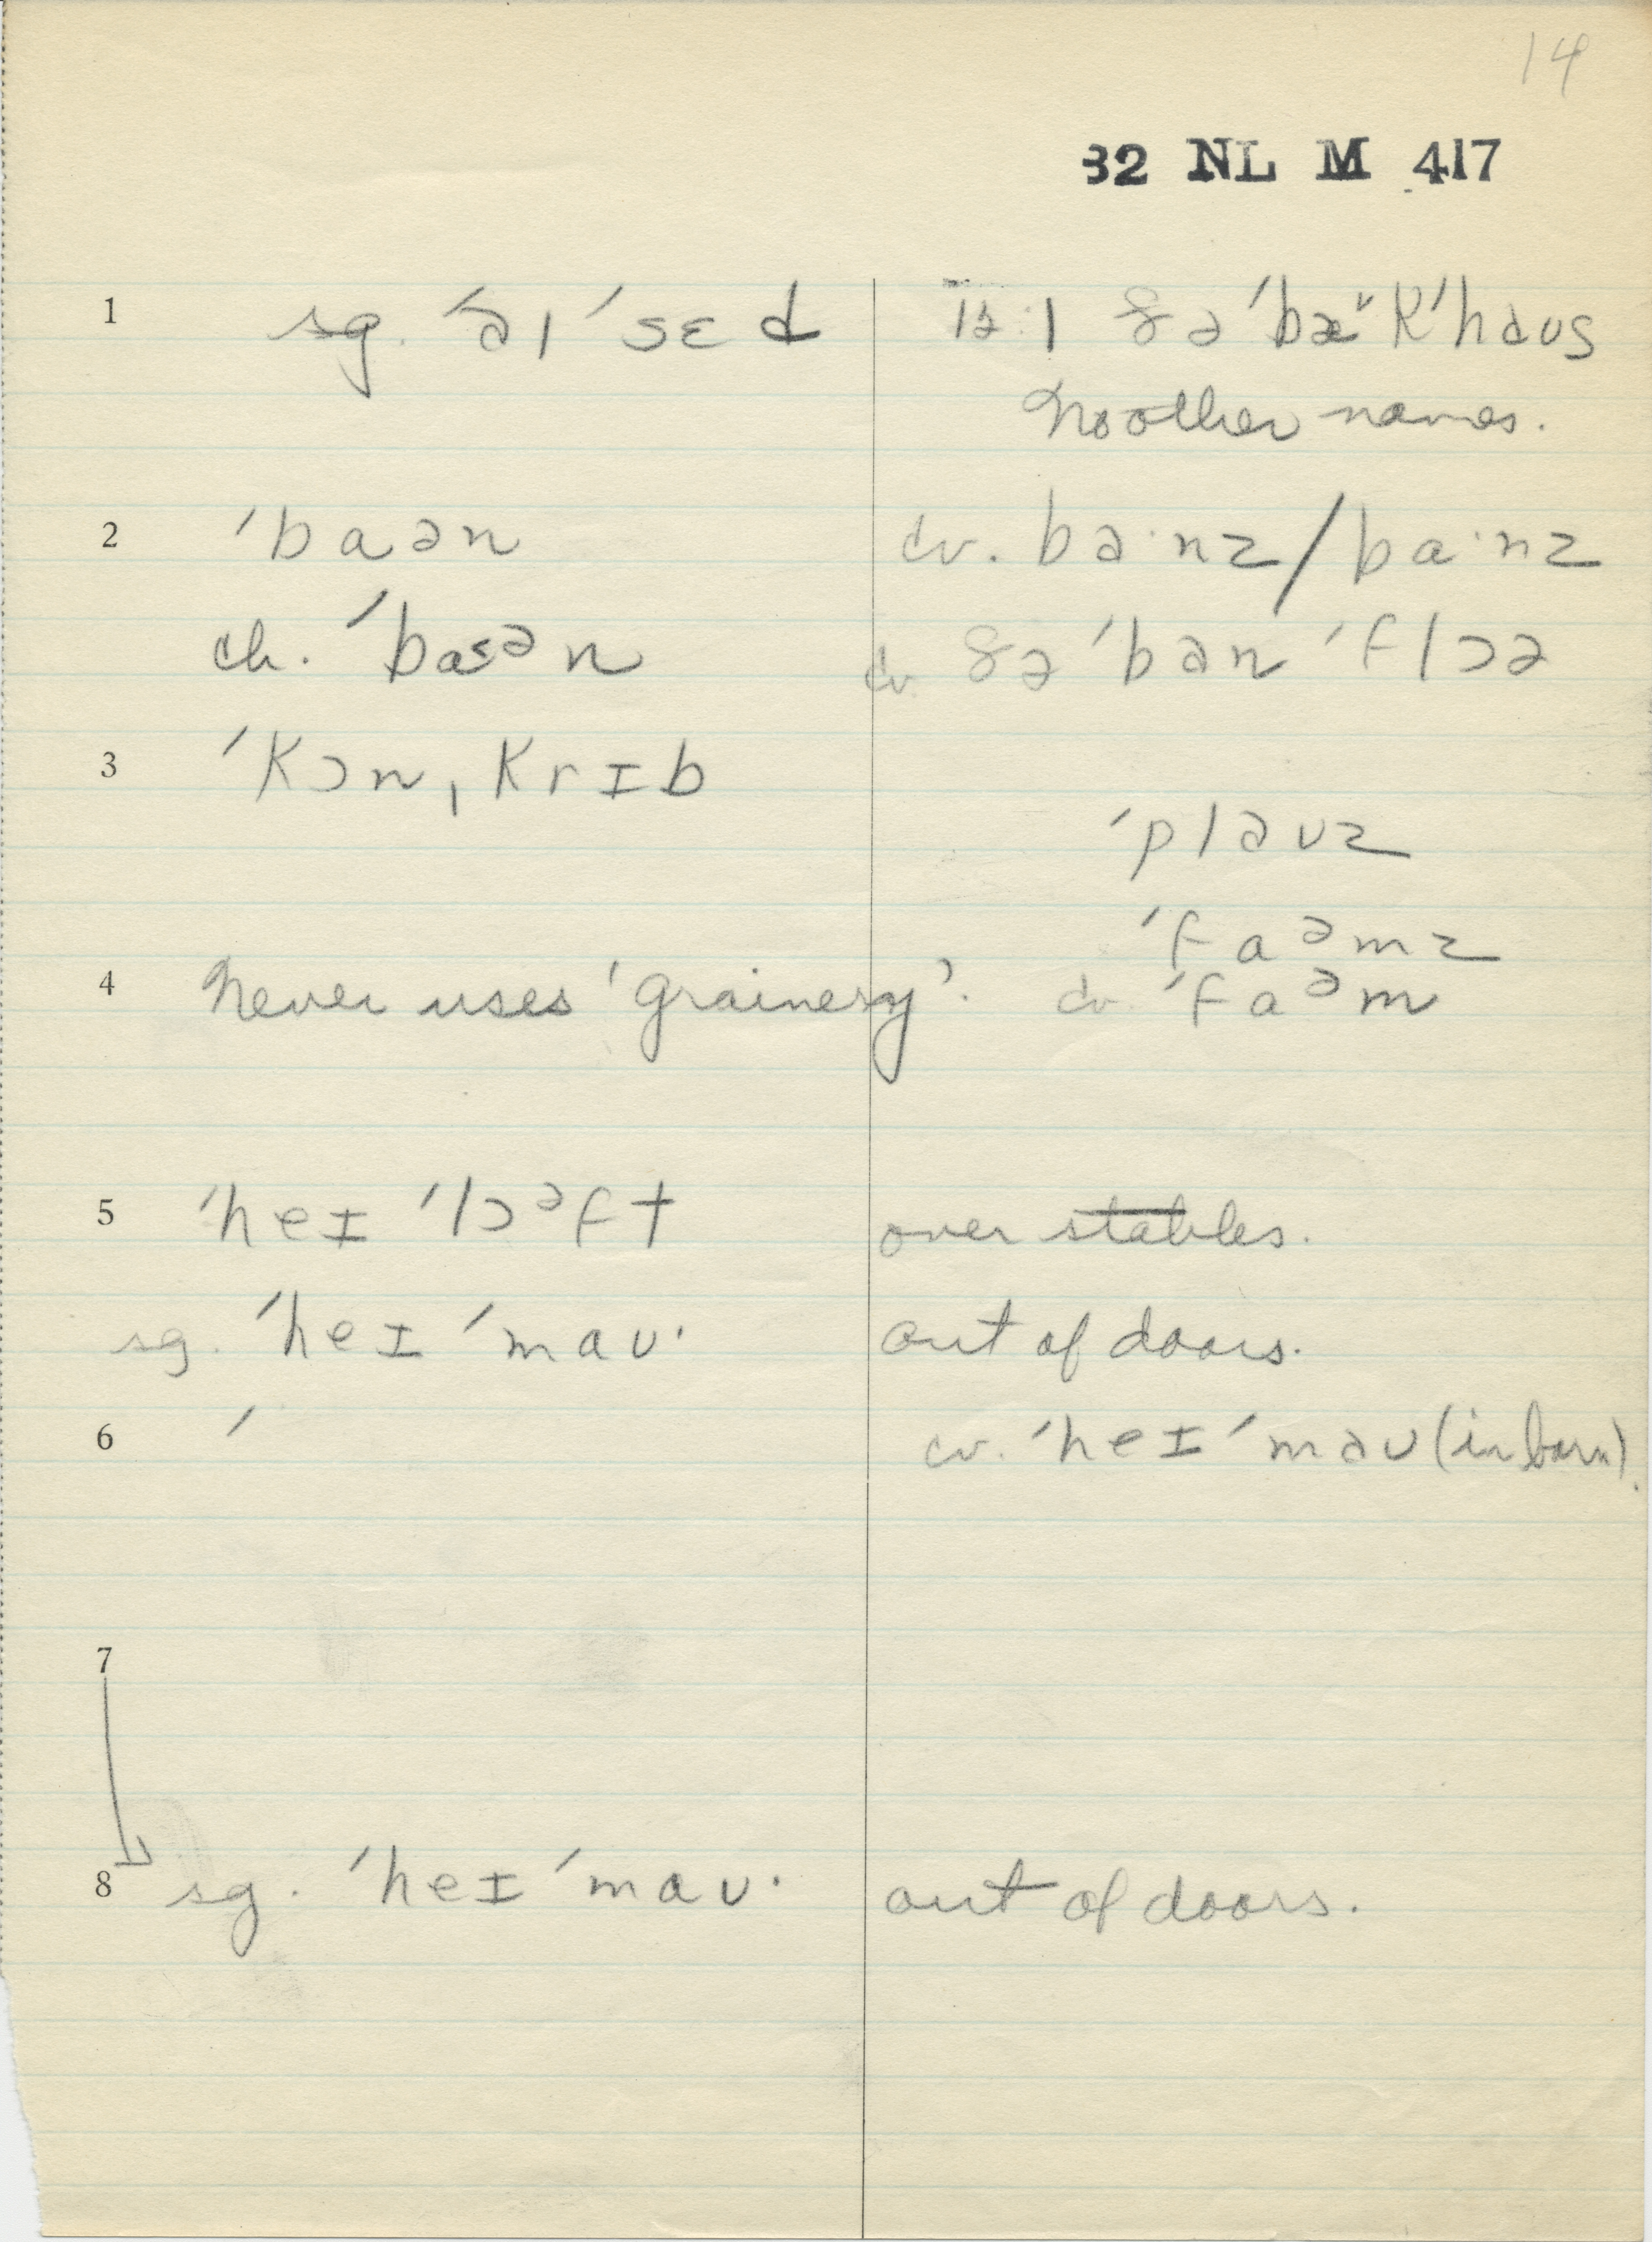 14
32 NL M 417
1 sg. ˊə ı ˊsɛ d
ðə ˊbæ˅kˊhaus
No other names.
2 ˊbaən
cv. ba·nz/ba·nz
ch. ˊbaˤᵊn
cv. ðə ˊban ˊflɔə
3 ˊkɔnˌkrɪb
ˊplauz
ˊfaᵊmz
4 Never uses 'grainery'.
cv. ˊfaᵊm
5 ˊheɪ ˊlɔᵊft over stables.
sg. ˊheɪ ˊmaʊ· out of doors.
6 ˊ cv. ˊheɪ ˊmaʊ (in barn).
7
8 sg. ˊheɪ ˊmaʊ· out of doors.